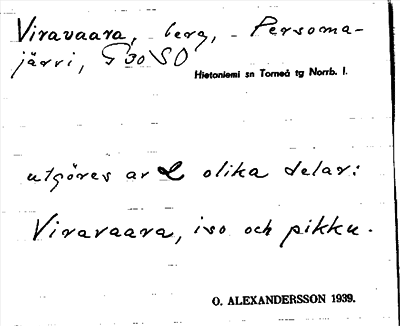 Viravaara, berg, - Persoma-
järvi, G 30 SO
Hietaniemi sn Torneå tg Norrb. l.
utgöres av 2 olika delar:
Viravaara, iso och pikku.
O. ALEXANDERSSON 1939.